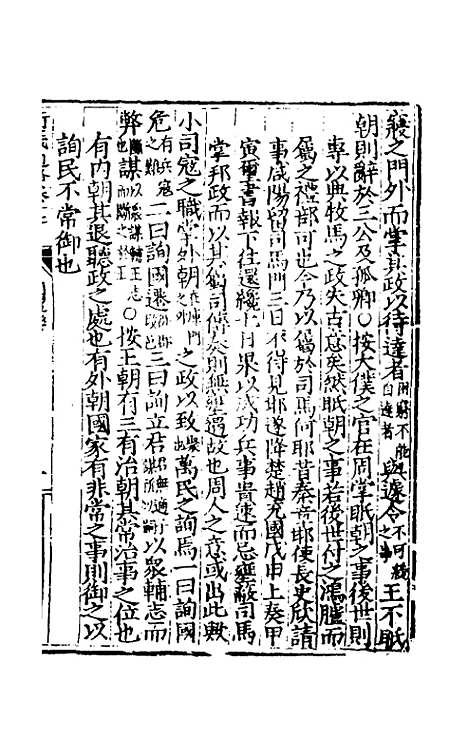 寢之門外而掌其政以待達者因窮不能自達者與遽令不可緩之事王不眡
朝則辭於三公及孤卿○按大僕之官在周掌眡朝之事後世則
專以典牧馬之政失古意矣然眡朝之事若後世付之鴻臚而
屬之禮部可也今乃以屬於司馬何耶昔秦章邯使長史欣請
事咸陽留司馬門三日不得見邯遂降楚趙充國戊申上奏甲
寅璽書報下往還纔七日果以成功兵事貴速而忌壅蔽司馬
掌邦政而以其屬司傳奏則無壅遏故也周人之意或出此歟
小司寇之職掌外朝在庫門之外之政以致聚萬民之詢焉一曰詢國
危有兵寇之難二曰詢國遷徙都改邑三曰詢立君君無適子謀所以嗣以眾輔志而
弊斷也謀以眾謀輔王志而斷之於王○按王朝有三有治朝其常治事之位也
有內朝其退聽政之處也有外朝國家有非常之事則御之以
詢民不常御也